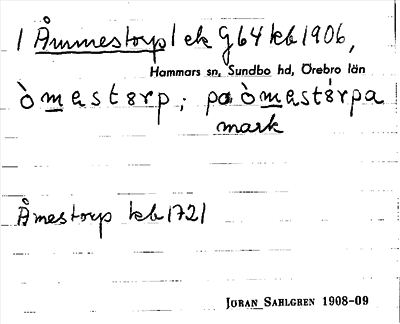 1 Åmmestorp / ek G64 kb 1906,
Hammars sn, Sundbo hd, Örebro län
òmestɘrp; pɑ òmestɘ́rpa
mark
Åmestorp kb 1721
JORAN SAHLGREN 1908-09